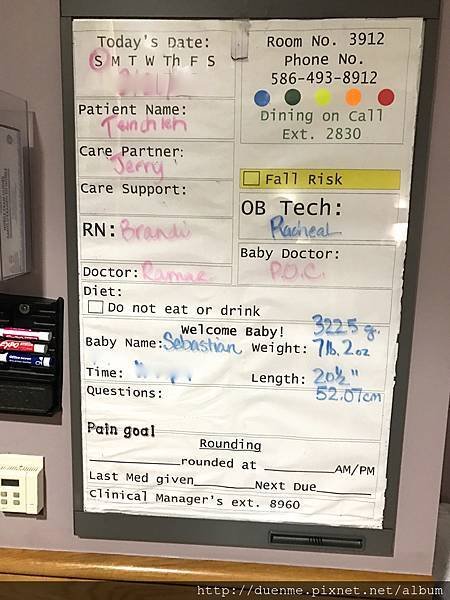 Today's Date:
S M T W Th F S
Patient Name:
Care Partner:
Jerry
Care Support:
RN: Brandi
Doctor:
Room No. 3912
Phone No.
586-493-8912
Dining on Call
Ext. 2830
Fall Risk
OB Tech:
Racheal
Baby Doctor:
P.O.C.
Diet:
Do not eat or drink
Welcome Baby!
3225 g.
Baby Name: Sebastian Weight: 7lb. 2oz
Time: Length: 20½"
52.07cm
Questions:
Pain goal
Rounding
rounded at AM/PM
Last Med given Next Due
Clinical Manager's ext. 8960
EXPO
http://duenme.pixnet.net/album